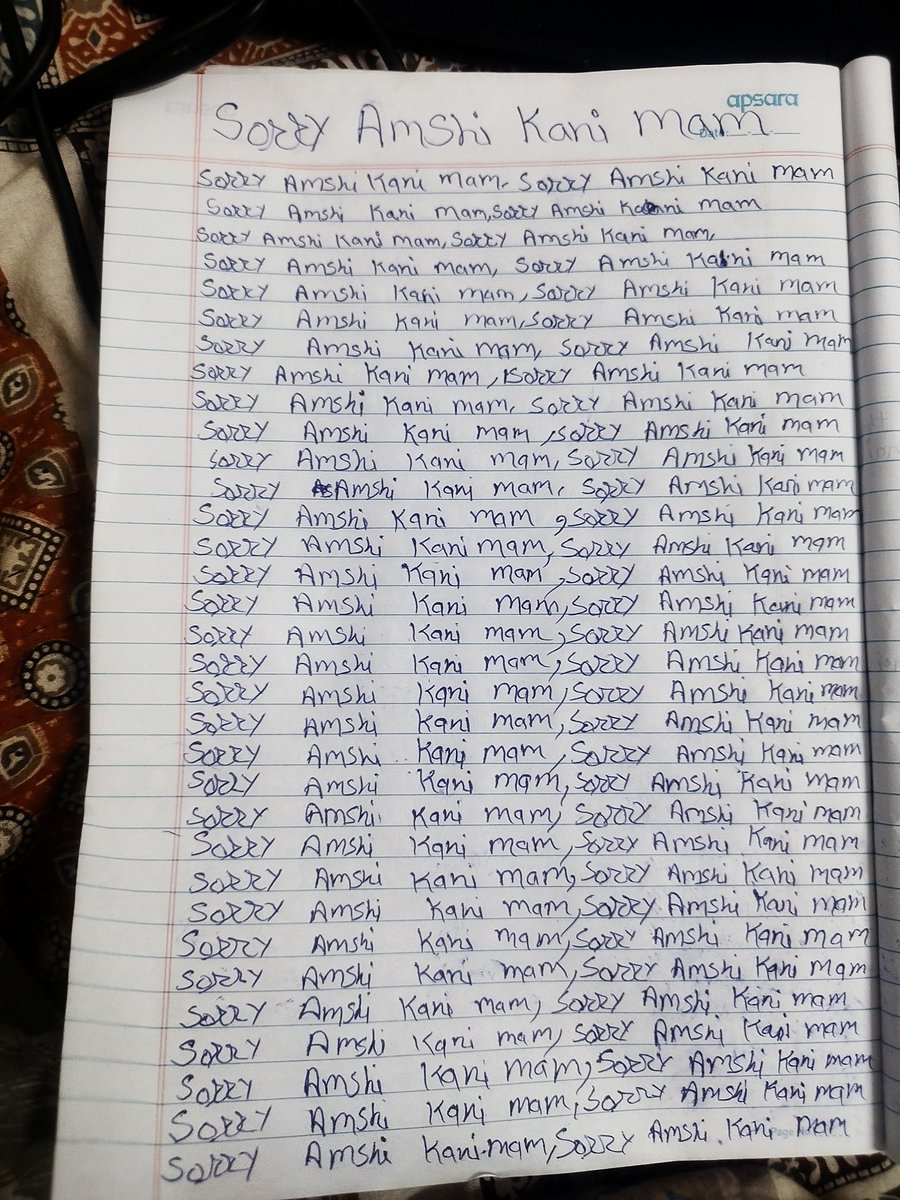 apsara
Sorry Amshi Kani mam
Sorry Amshi Kani mam, Sorry Amshi Kani mam
Sorry Amshi Kani mam, Sorry Amshi Kani mam
Sorry Amshi Kani mam, Sorry Amshi Kani mam,
Sorry Amshi Kani mam, Sorry Amshi Kani mam
Sorry Amshi Kani mam, Sorry Amshi Kani mam
Sorry Amshi Kani mam, Sorry Amshi Kani mam
Sorry Amshi Kani mam, Sorry Amshi Kani mam
Sorry Amshi Kani mam, Sorry Amshi Kani mam
Sorry Amshi Kani mam, Sorry Amshi Kani mam
Sorry Amshi Kani mam, Sorry Amshi Kani mam
Sorry Amshi Kani mam, Sorry Amshi Kani mam
Sorry Amshi Kani mam, Sorry Amshi Kani mam
Sorry Amshi Kani mam, Sorry Amshi Kani mam
Sorry Amshi Kani mam, Sorry Amshi Kani mam
Sorry Amshi Kani mam, Sorry Amshi Kani mam
Sorry Amshi Kani mam, Sorry Amshi Kani mam
Sorry Amshi Kani mam, Sorry Amshi Kani mam
Sorry Amshi Kani mam, Sorry Amshi Kani mam
Sorry Amshi Kani mam, Sorry Amshi Kani mam
Sorry Amshi Kani mam, Sorry Amshi Kani mam
Sorry Amshi Kani mam, Sorry Amshi Kani mam
Sorry Amshi Kani mam, Sorry Amshi Kani mam
Sorry Amshi Kani mam, Sorry Amshi Kani mam
Sorry Amshi Kani mam, Sorry Amshi Kani mam
Sorry Amshi Kani mam, Sorry Amshi Kani mam
Sorry Amshi Kani mam, Sorry Amshi Kani mam
Sorry Amshi Kani mam, Sorry Amshi Kani mam
Sorry Amshi Kani mam, Sorry Amshi Kani mam
Sorry Amshi Kani mam, Sorry Amshi Kani mam
Sorry Amshi Kani mam, Sorry Amshi Kani mam
Sorry Amshi Kani mam, Sorry Amshi Kani mam
Sorry Amshi Kani mam, Sorry Amshi Kani mam
Sorry Amshi Kani mam, Sorry Amshi Kani mam